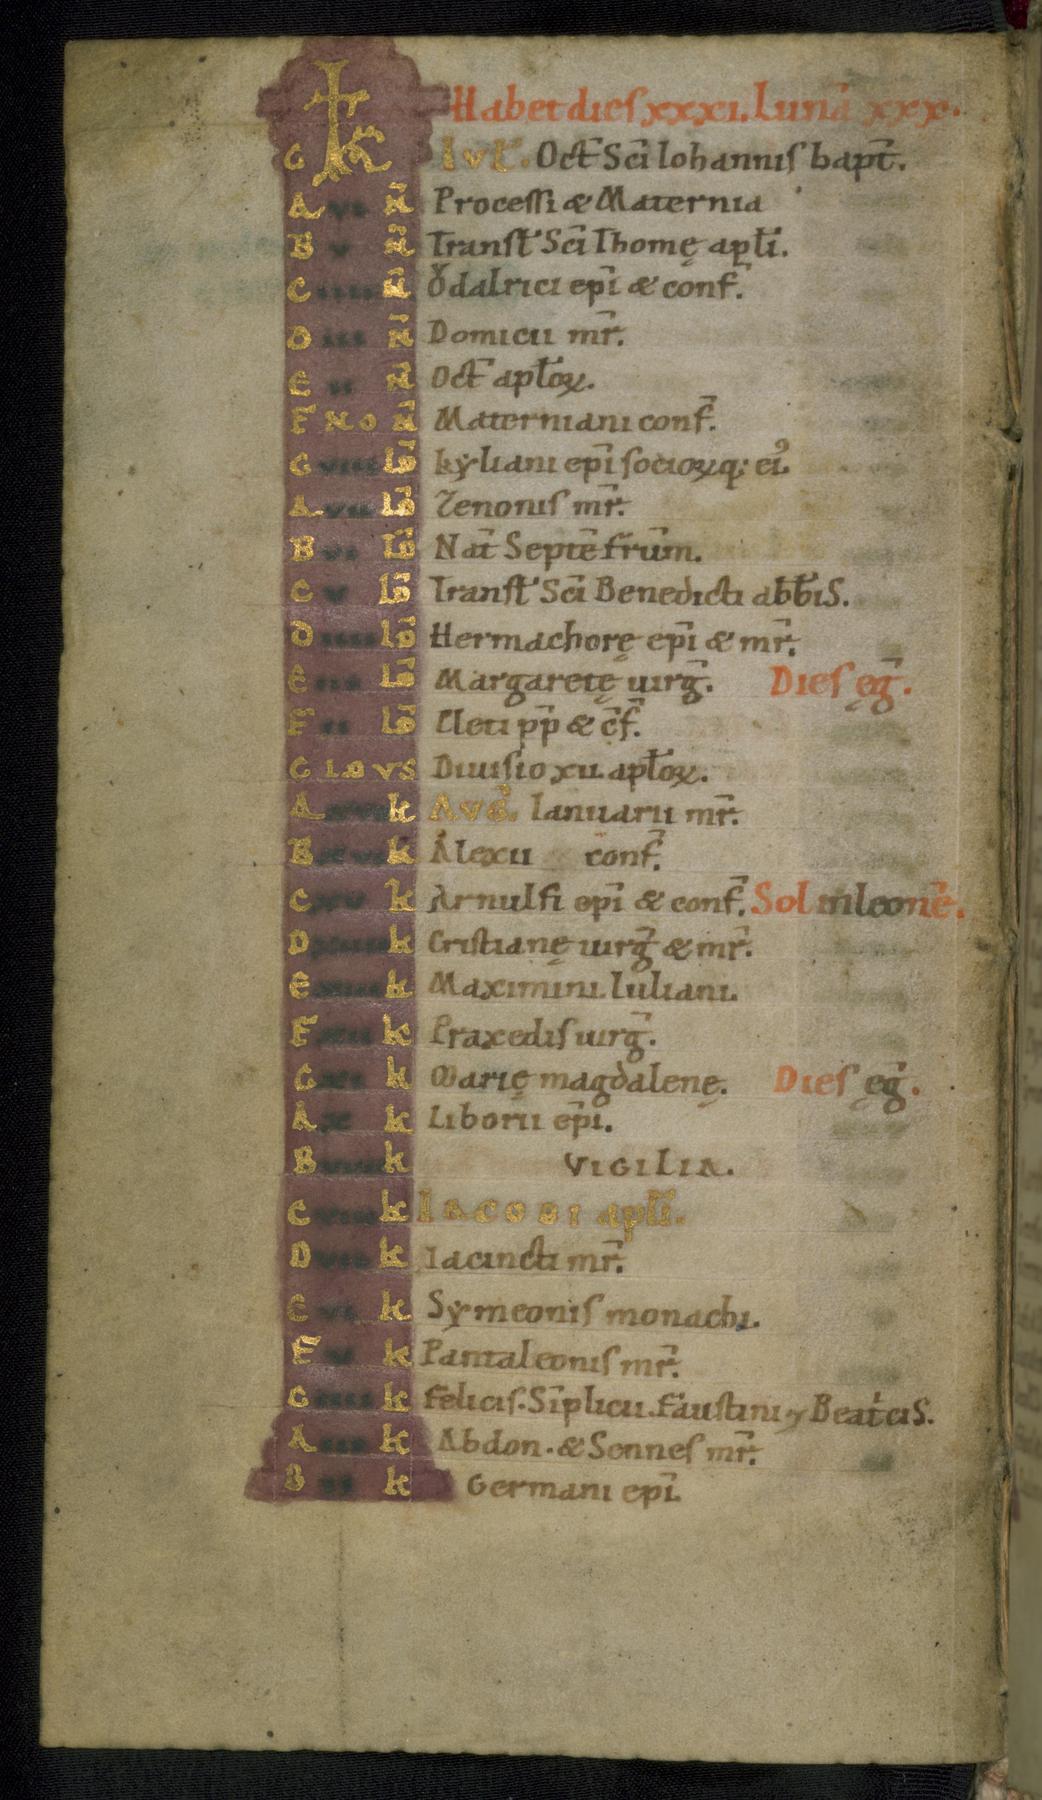 Habet dies xxxi. Luna xxx.
G k Iul. Oct Sci Iohannis bapt.
A vi N Processi & Maternia
B v N Transl Sci Thomę apli.
C iiii N Odalrici epi & conf.
D iii N Domicii mr.
E ii N Oct aploꝝ.
F NO N Materniani conf.
G viii Id Kyliani epi socioꝝq; ei⁹
A vii Id Zenonis mr.
B vi Id Nat Septe frum.
C v Id Transl Sci Benedicti abbis.
D iiii Id Hermachorę epi & mr.
E iii Id Margaretę uirg. Dies ęg.
F ii Id Cleti pp & cf.
G IDVS Diuisio xii aploꝝ.
A k AVG. Ianuarii mr.
B k Alexii conf.
C k Arnulfi epi & conf. Sol in leone.
D k Cristianę uirg & mr.
E k Maximini. Iuliani.
F k Praxedis uirg.
G k Marię magdalenę. Dies ęg.
A x k Liborii epi.
B k VIGILIA.
C k IACOBI apli.
D vii k Iacincti mr.
E vi k Symeonis monachi.
F v k Pantaleonis mr.
G iiii k Felicis. Siplicii. Faustini ⁊ Beatcis.
A iii k Abdon. & Sennes mr.
B ii k Germani epi.